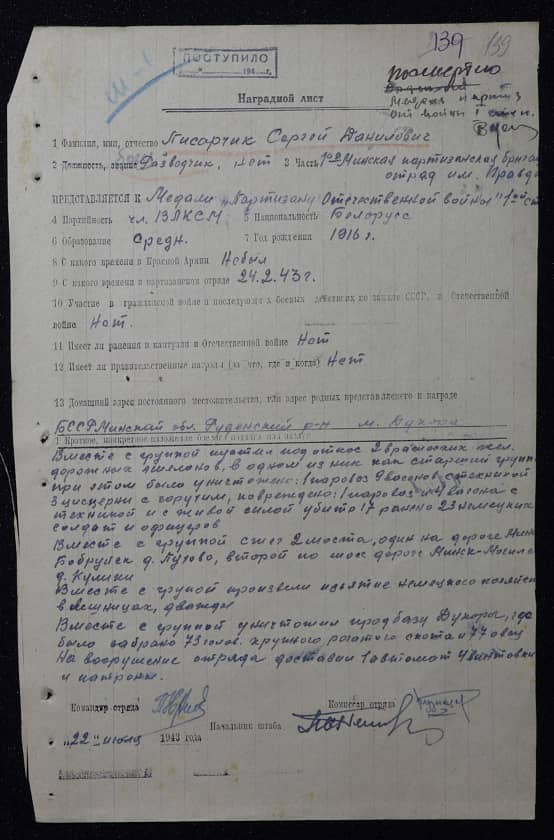 139 139
ПОСТУПИЛО
194 г.
М-1
посмертно
Медаль партиз
От войны 1
Наградной лист
1 Фамилия, имя, отчество Писарчик Сергей Данилович
2 Должность, звание Разводчик, нет 3 Часть 1ая Минская партизанская бригада
отряд им. Правда
ПРЕДСТАВЛЯЕТСЯ К Медали „Партизану Отечественной войны" 1ой ст
4 Партийность чл. ВЛКСМ 5 Национальность Белорусс
6 Образование Средн. 7 Год рождения 1916 г.
8 С какого времени в Красной Армии Небыл
9 С какого времени в партизанском отряде 24.2.43г.
10 Участие в гражданской войне и последующих боевых действиях по защите СССР, и Отечественной
войне Нет.
11 Имеет ли ранения и контузии в Отечественной войне Нет
12 Имеет ли правительственные награды (за что, где и когда) Нет
13 Домашний адрес постоянного местожительства, или адрес родных представляемого к награде
БССР Минская обл. Руденский р-н м. Дукора
1 Краткое, конкретное изложение боевого подвига или заслуг
Вместе с группой пустил под откос 2 вражеских жел.
дорожных эшелонов, в одном из них как старший группы
при этом было уничтожено: 1 паровоз 9 вагонов с техникой
3 цисцерны с горучим, повреждено: 1 паровоз и 4 вагона с
техникой и с живой силой убито 17 ранено 23 немецких
солдат и офицеров
Вместе с группой сжег 2 моста, один на дороге Минск
Бобруйск д. Пухово, второй по шос дороге Минск-Могилев
д. Кулики
Вместе с групой произвели изъятие немецкого
в дважды
Вместе с группой уничтожил продбазу Дукоры, где
было забрано 73 голов. крупного рогатого скота и 77 овец
На вооружение отряда доставил 1 автомат 4 винтовки
и патроны.
Командир отряда
Комиссар отряда
Начальник штаба
„22" июля 1943 года